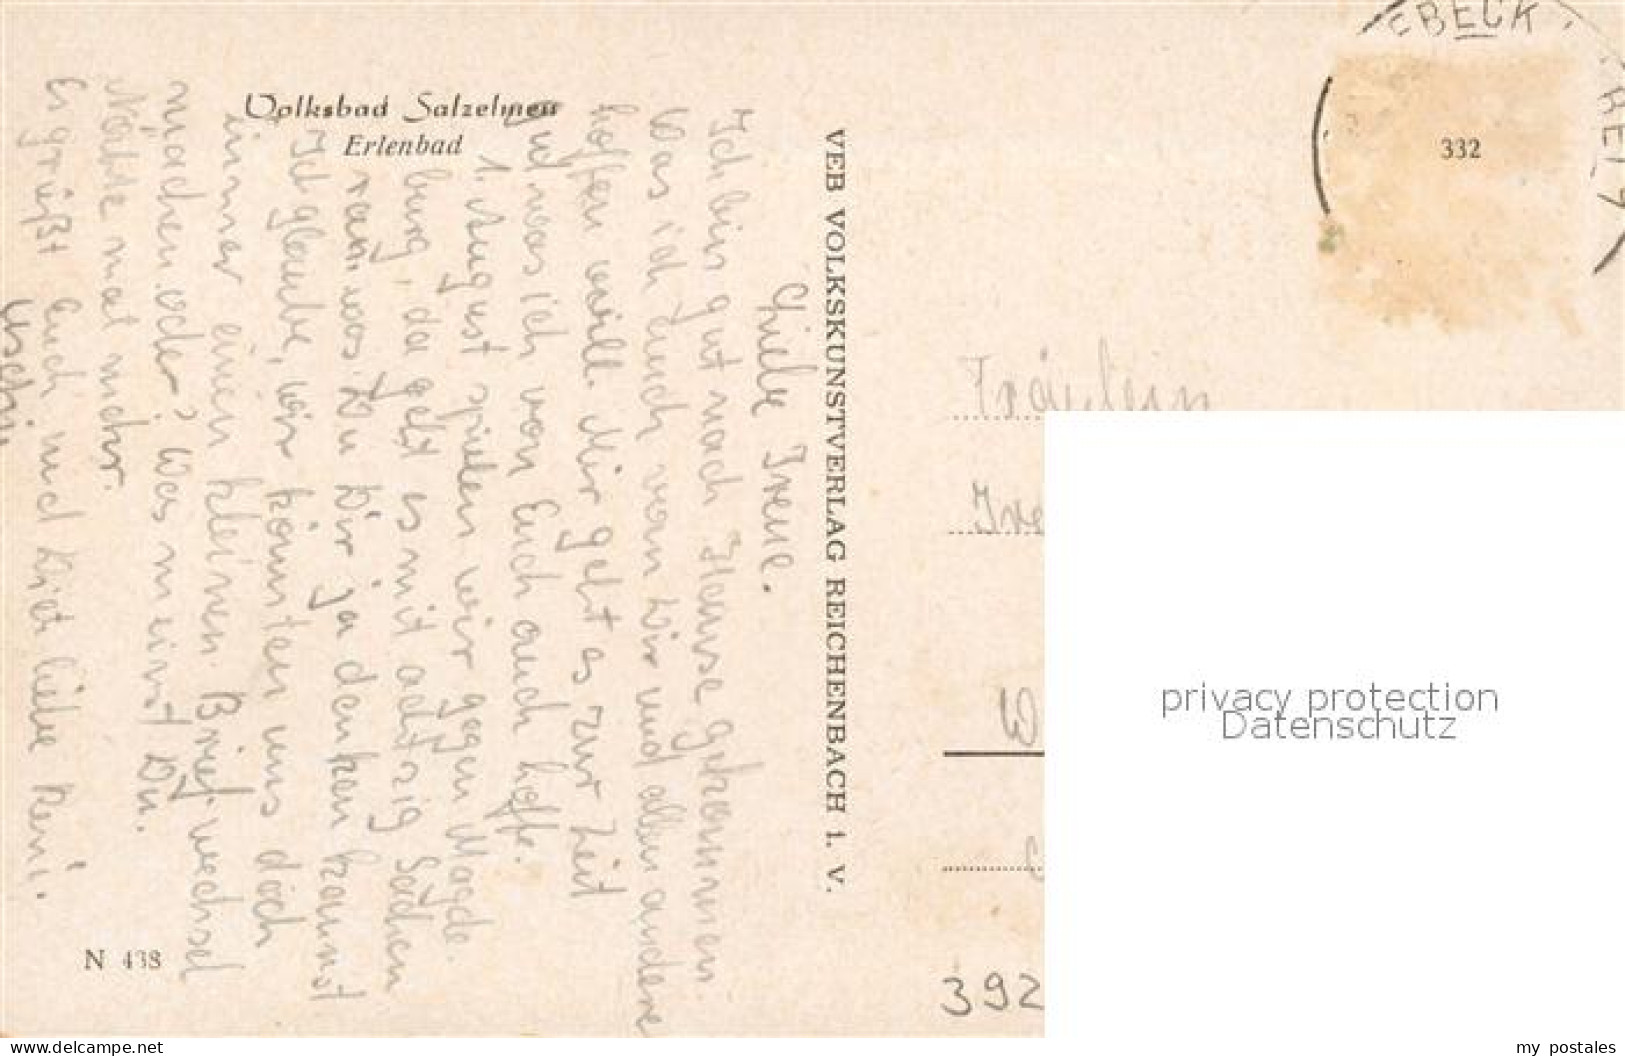 Volksbad Salzelmen
Erlenbad
Liebe Irene.
Ich bin gut nach Hause gekommen.
Was ich Euch von Dir und allen andere
hoffen will. Mir geht es zur Zeit
gut was ich von Euch auch hoffe.
1. August spielen wir gegen Magde-
burg, da geht es mit achtzig Sachen
ran, was Du Dir ja denken kannst
Ich glaube, wir könnten uns doch
immer einen kleinen Briefwechsel
machen oder, was meinst Du.
Näkte mal mehr.
Es grüßt Euch und Dich liebe Reni.
Uschi.
N 438
VEB VOLKSKUNSTVERLAG REICHENBACH i. V.
EBECK
KREIS
332
Fräulein
Ire
W
392
privacy protection
Datenschutz
www.delcampe.net
my_postales